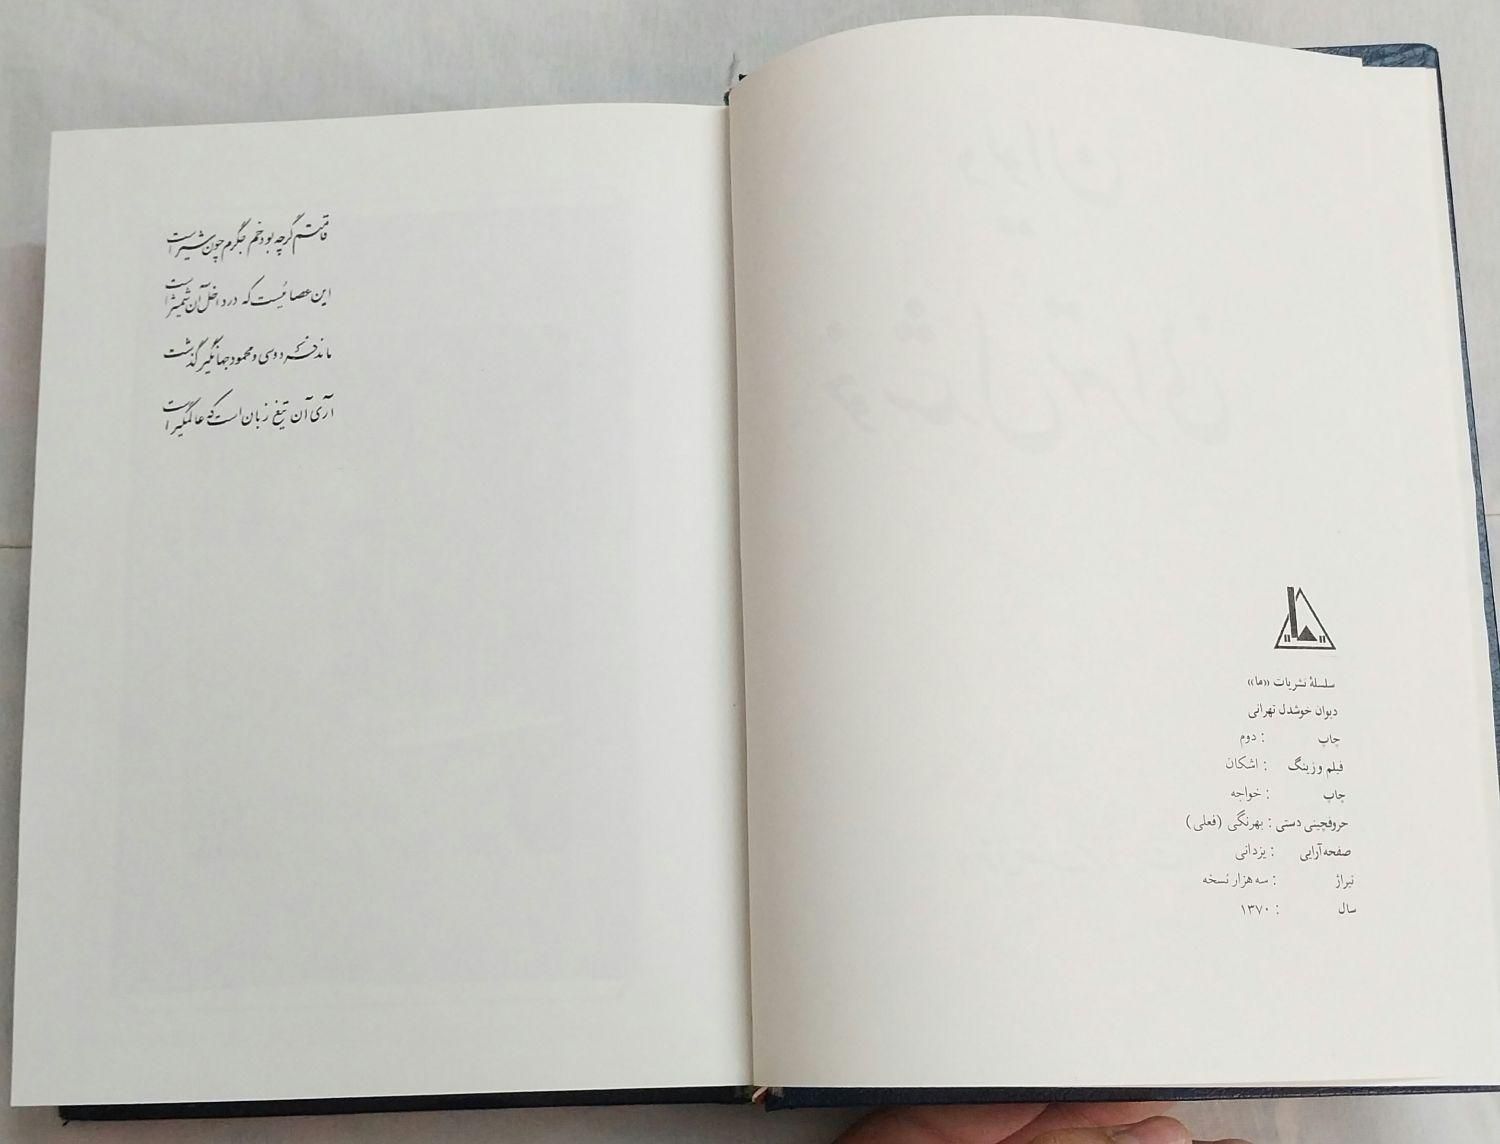 سلسلهٔ نشریات «ما»
دیوان خوشدل تهرانی
چاپ : دوم
فیلم و زینگ : اشکان
چاپ : خواجه
حروفچینی دستی : بهرنگی (فعلی)
صفحه‌آرایی : یزدانی
تیراژ : سه هزار نسخه
سال : ۱۳۷۰
قامتم گرچه بود خم جگرم چون شیر است
این عصا نیست که در داخل آن شمشیر است
ماند فردوسی و محمود جهانگیر گذشت
آری آن تیغ زبان است که عالمگیر است